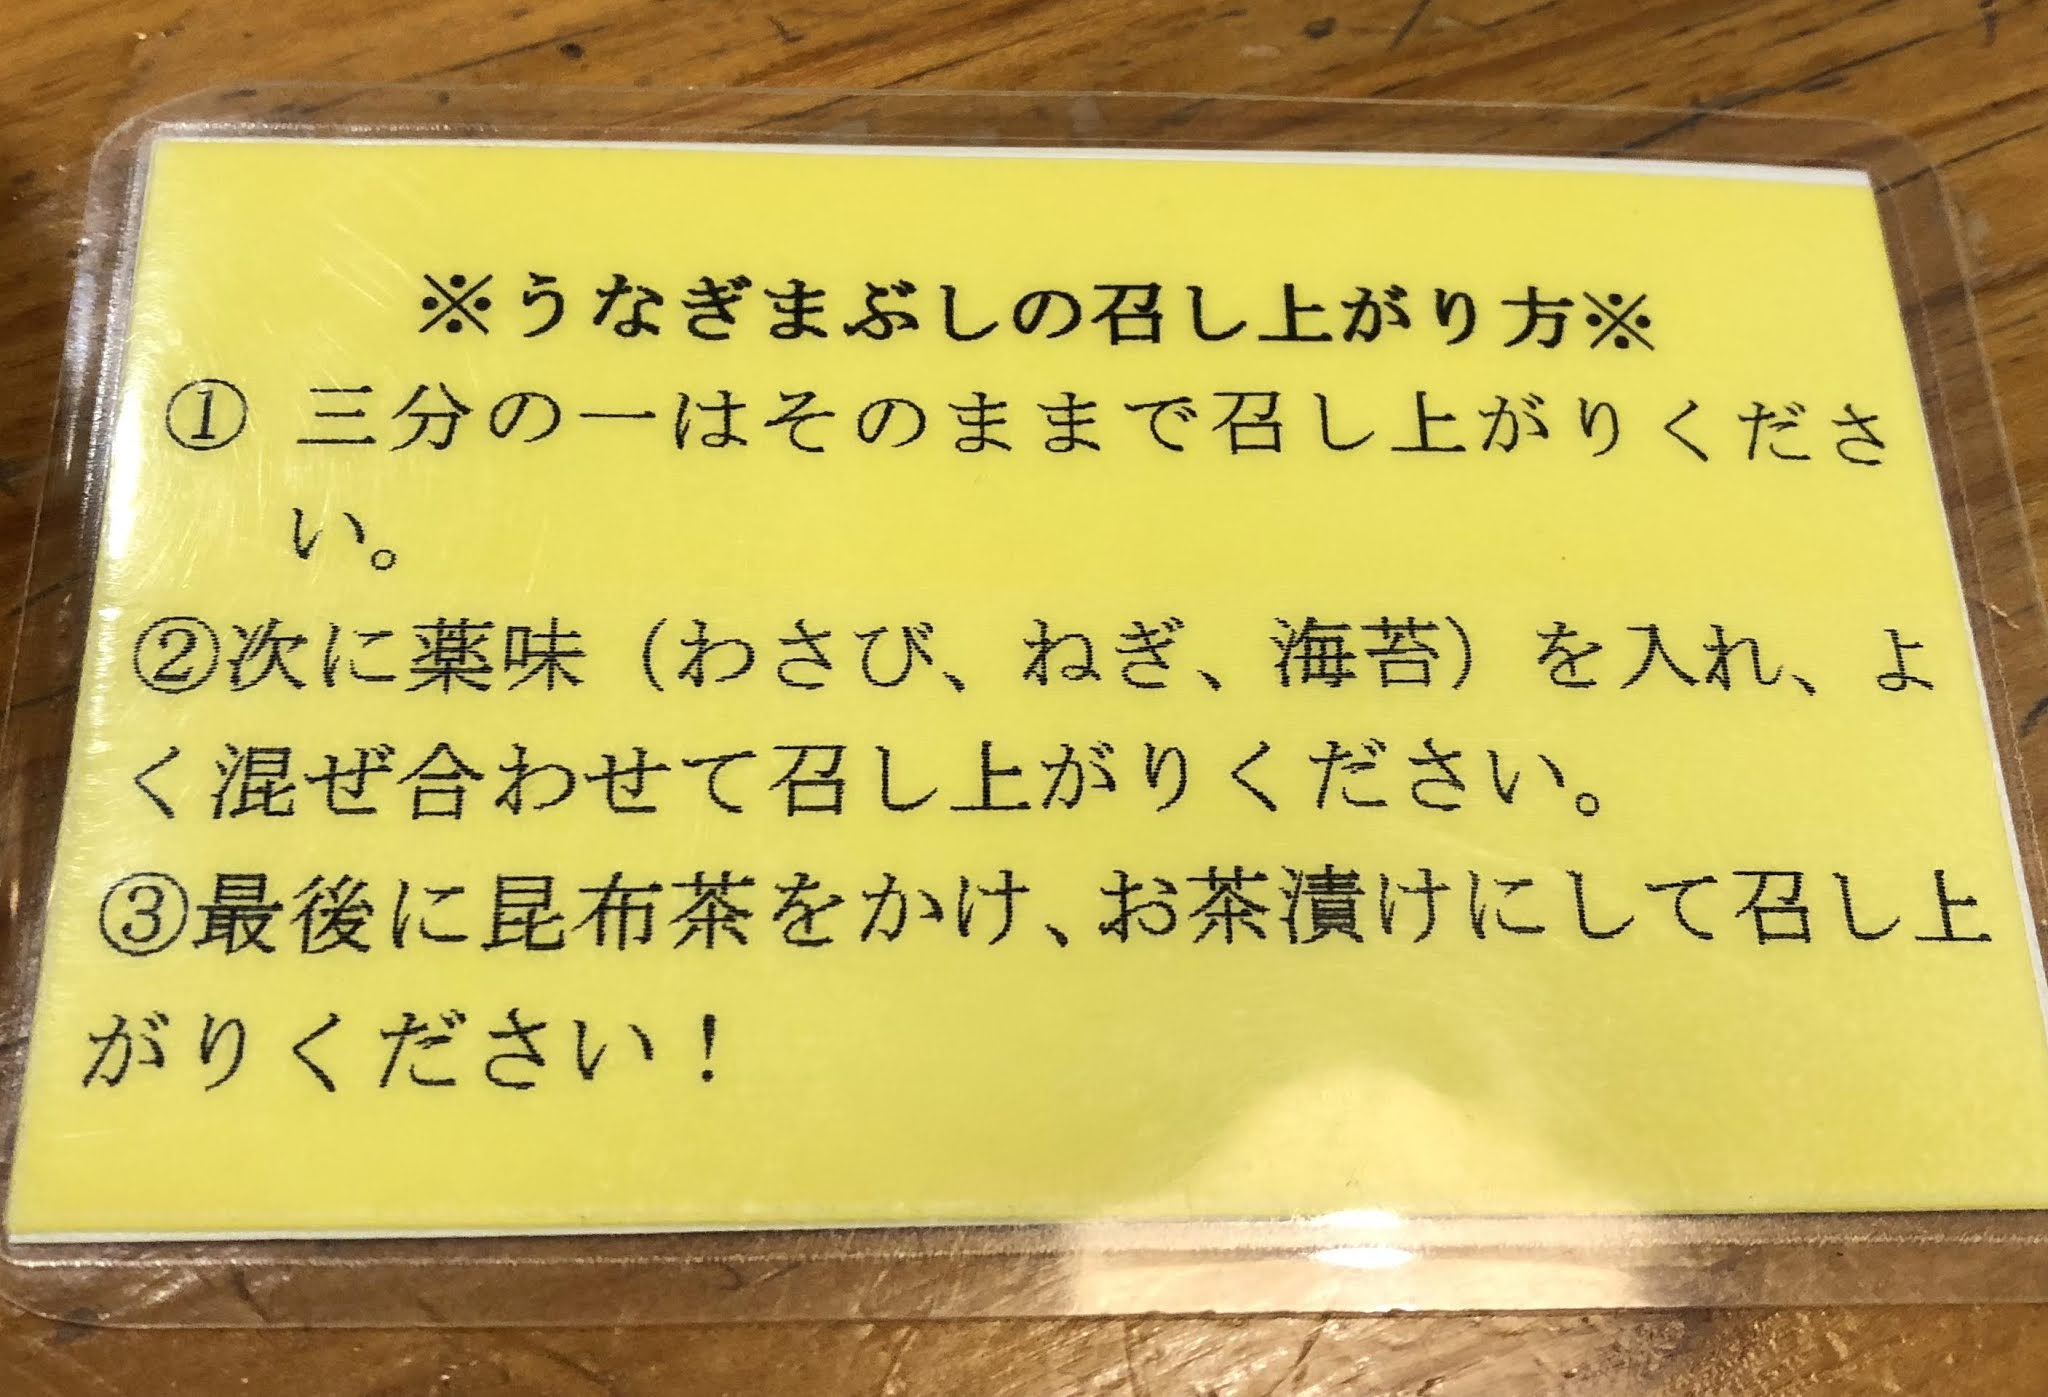 ※うなぎまぶしの召し上がり方※
① 三分の一はそのままで召し上がりくださ
い。
②次に薬味（わさび、ねぎ、海苔）を入れ、よ
く混ぜ合わせて召し上がりください。
③最後に昆布茶をかけ、お茶漬けにして召し上
がりください！